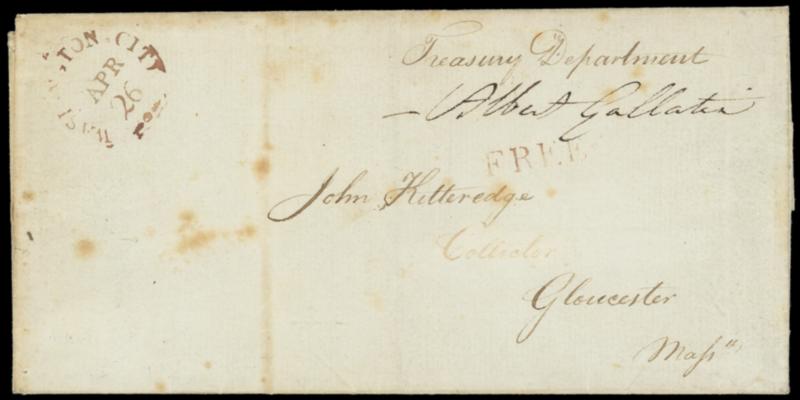 WASHINGTON·CITY
APR
26
Treasury Department
— Albert Gallatin
FREE
John Kitteredge
Collector
Gloucester
Maſs